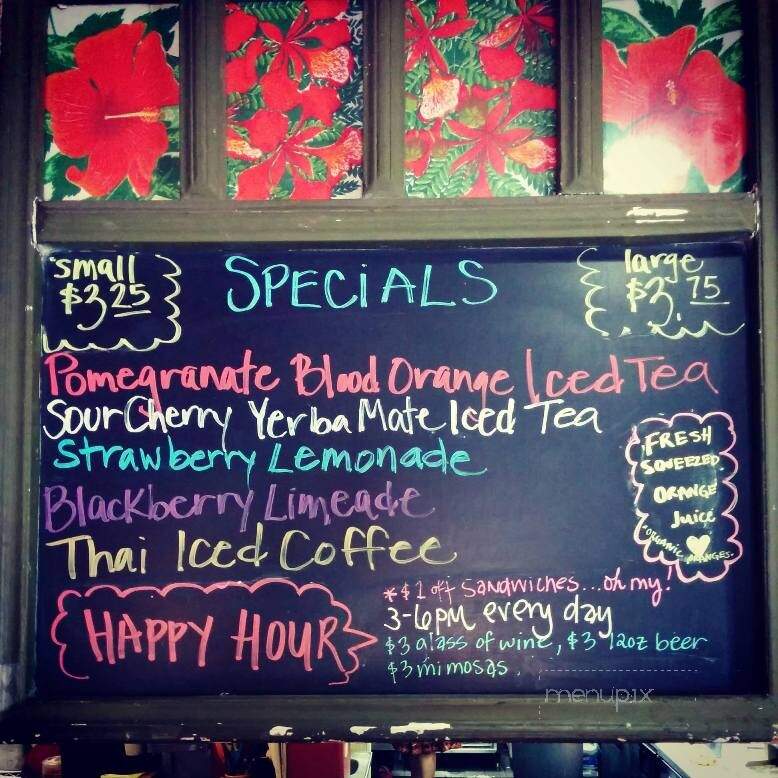 small
$3.25
SPECiALS
large
$3.75
Pomegranate Blood Orange Iced Tea
Sour Cherry Yerba Mate Iced Tea
Strawberry Lemonade
Blackberry Limeade
Thai Iced Coffee
FRESH
SQUEEZED
ORANGE
Juice
ORGANIC ORANGES
HAPPY HOUR
*$1 off SANDWICHES...oh my!
3-6pm every day
$3 glass of wine, $3 12oz beer
$3 mimosas
menupix